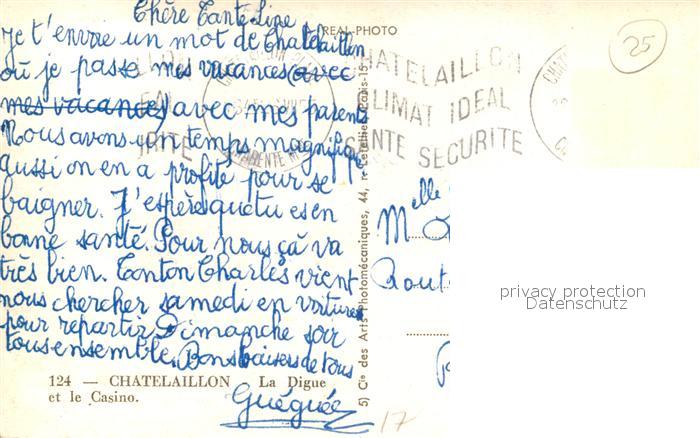 Chère Tante Line
Je t'envoie un mot de Chatelaillon
où je passe mes vacances (avec
mes vacances) avec mes parents
Nous avons un temps magnifique
aussi on en a profité pour se
baigner. J'espères que tu es en
bonne santé. Pour nous çà va
très bien. Tonton Charles vient
nous chercher samedi en voiture
pour repartir Dimanche soir
tous ensemble. Bons baisers de tous
Guéguée
124 — CHATELAILLON La Digue
et le Casino.
REAL-PHOTO
CHATELAILLON
CLIMAT IDEAL
SANTE SECURITE
25
5) Cie des Arts Photomécaniques, 44, r. Letellier, Paris-15
Melle
Rout
privacy protection
Datenschutz
17